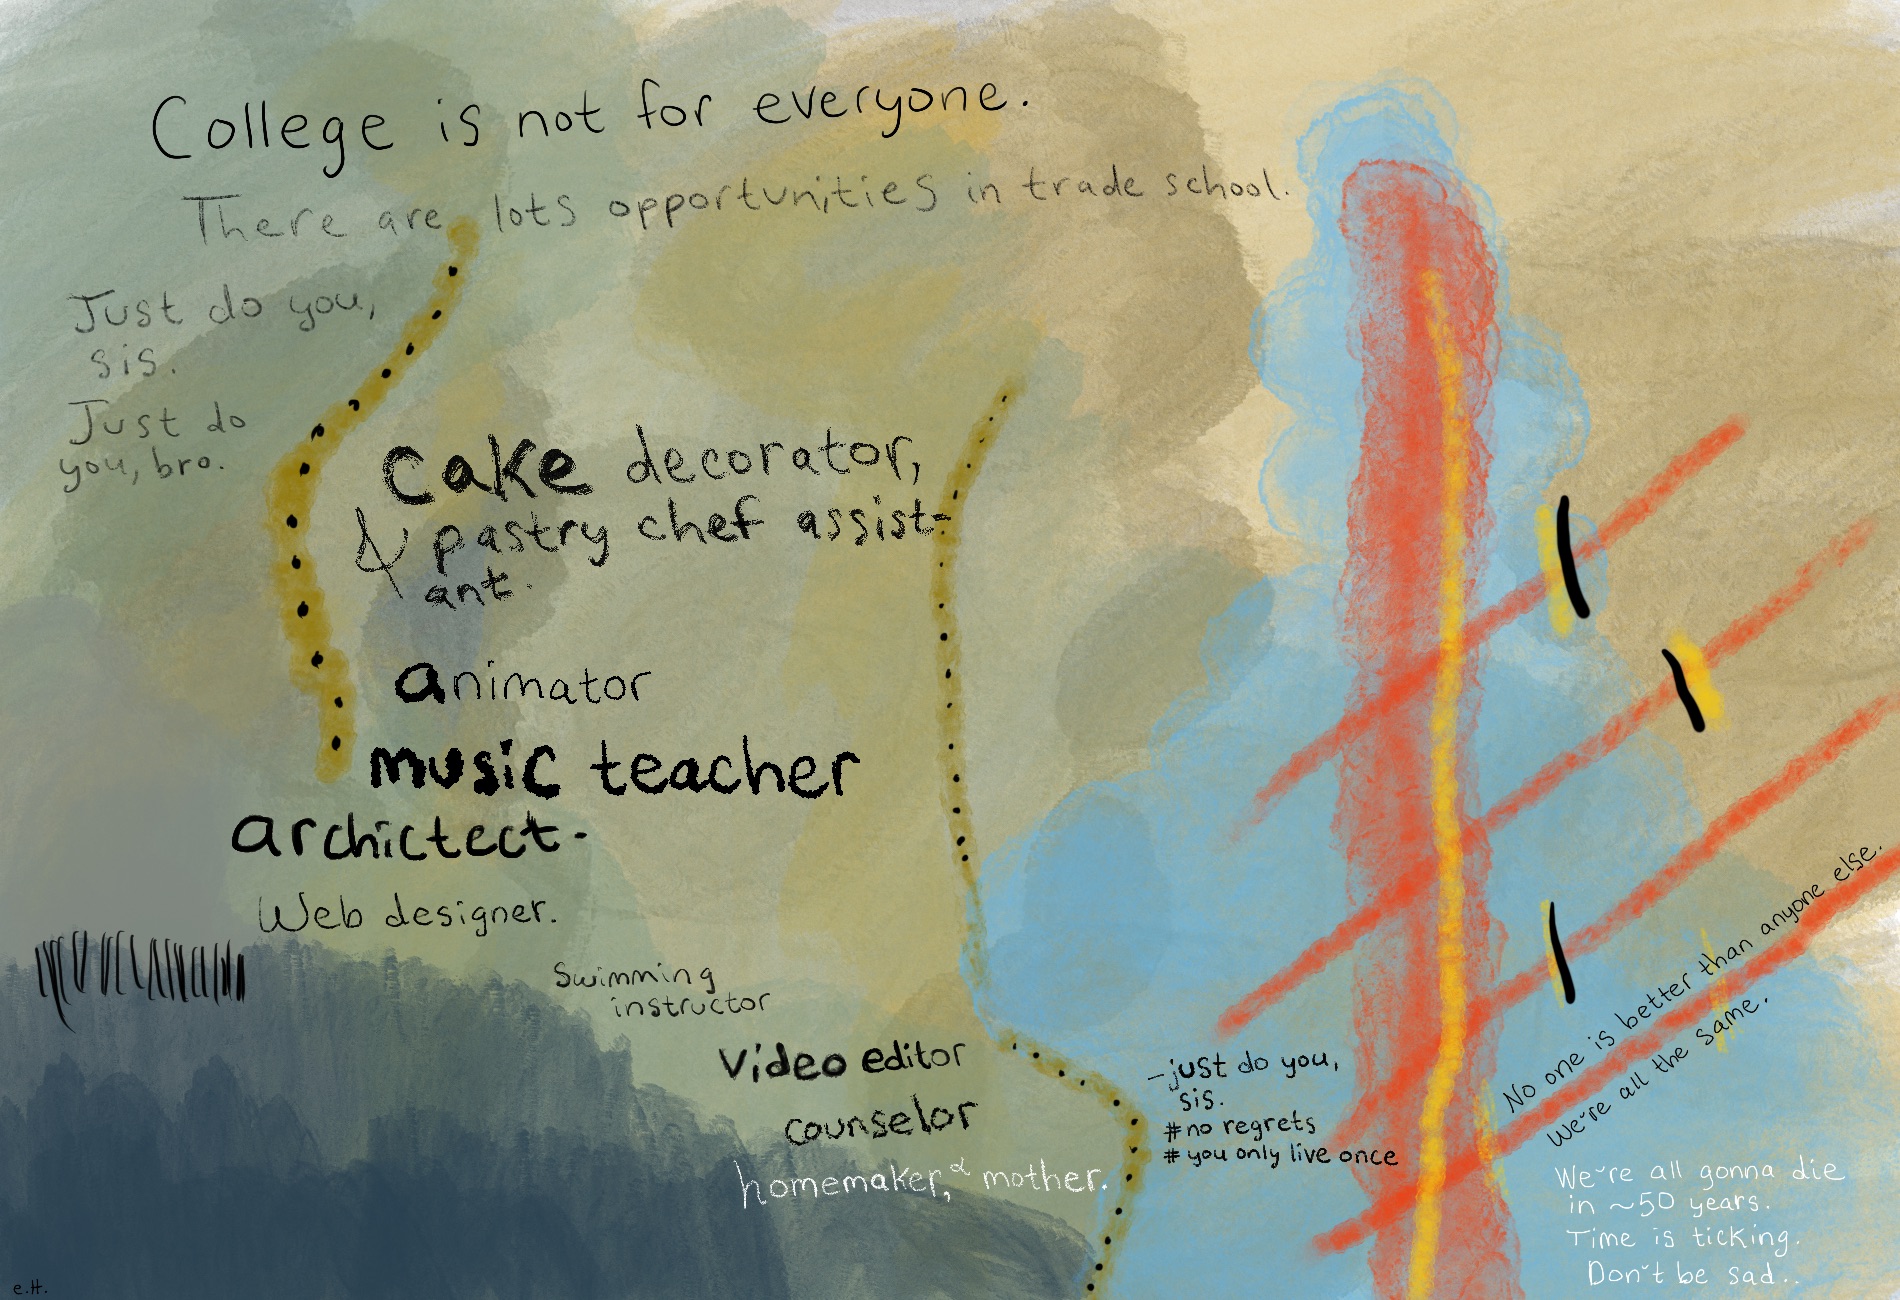 College is not for everyone.
There are lots opportunities in trade school.
Just do you,
sis.
Just do
you, bro.
Cake decorator,
& pastry chef assist-
ant.
animator
music teacher
archictect-
Web designer.
Swimming
instructor
Video editor
counselor
homemaker, & mother.
-just do you,
sis.
#no regrets
# you only live once
No one is better than anyone else.
We're all the same.
We're all gonna die
in ~50 years.
Time is ticking.
Don't be sad..
e.H.